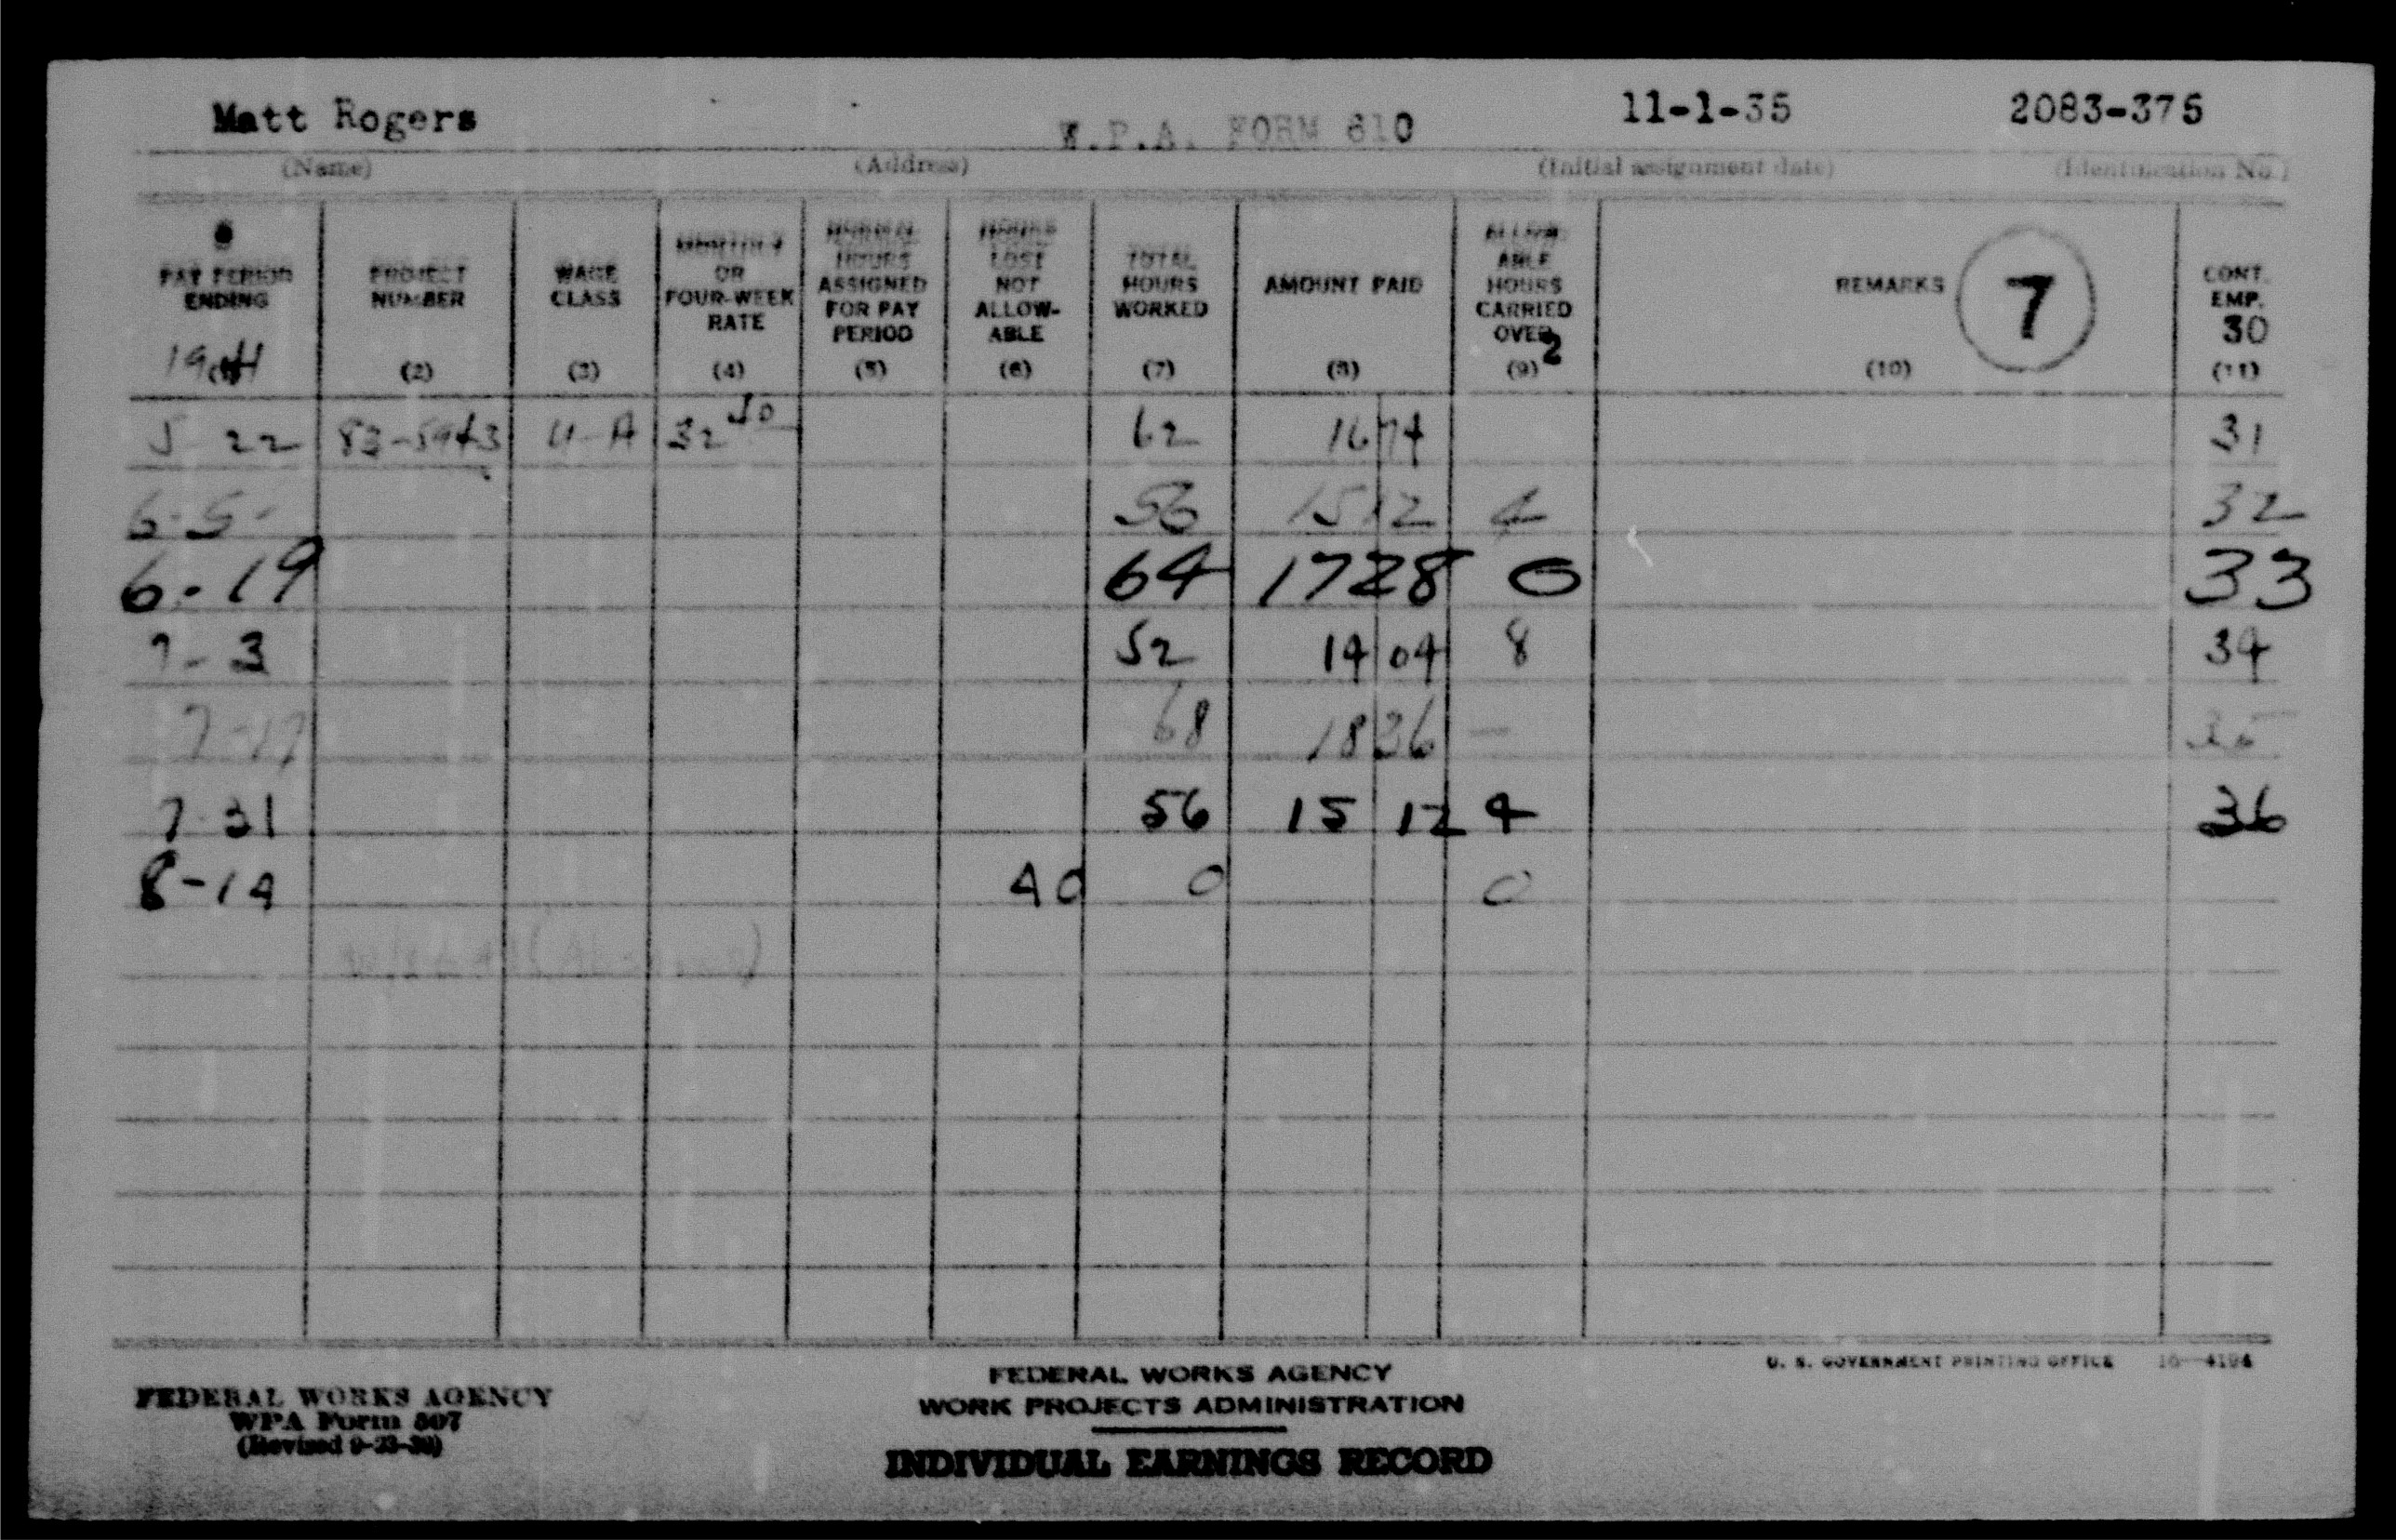 Matt Rogers W.P.A. FORM 610 11-1-35 2083-375
(Name) (Address) (Initial assignment date) (Identification No.)
PAY PERIOD ENDING 19 PROJECT NUMBER (2) WAGE CLASS (3) MONTHLY OR FOUR-WEEK RATE (4) NORMAL HOURS ASSIGNED FOR PAY PERIOD (5) HOURS LOST NOT ALLOW-ABLE (6) TOTAL HOURS WORKED (7) AMOUNT PAID (8) ALLOW-ABLE HOURS CARRIED OVER 2 (9) REMARKS (10) 7 CONT. EMP. 30 (11)
5 22 83-5943 U-A 32 40 62 16 74 31
6-5- 56 15 12 4 32
6-19 64 17 28 0 33
7-3 52 14 04 8 34
7-17 68 18 36 — 35
7-31 56 15 12 4 36
8-14 40 0 0
FEDERAL WORKS AGENCY
WPA Form 507
(Revised 9-23-39)
FEDERAL WORKS AGENCY
WORK PROJECTS ADMINISTRATION
INDIVIDUAL EARNINGS RECORD
U. S. GOVERNMENT PRINTING OFFICE 16—4194